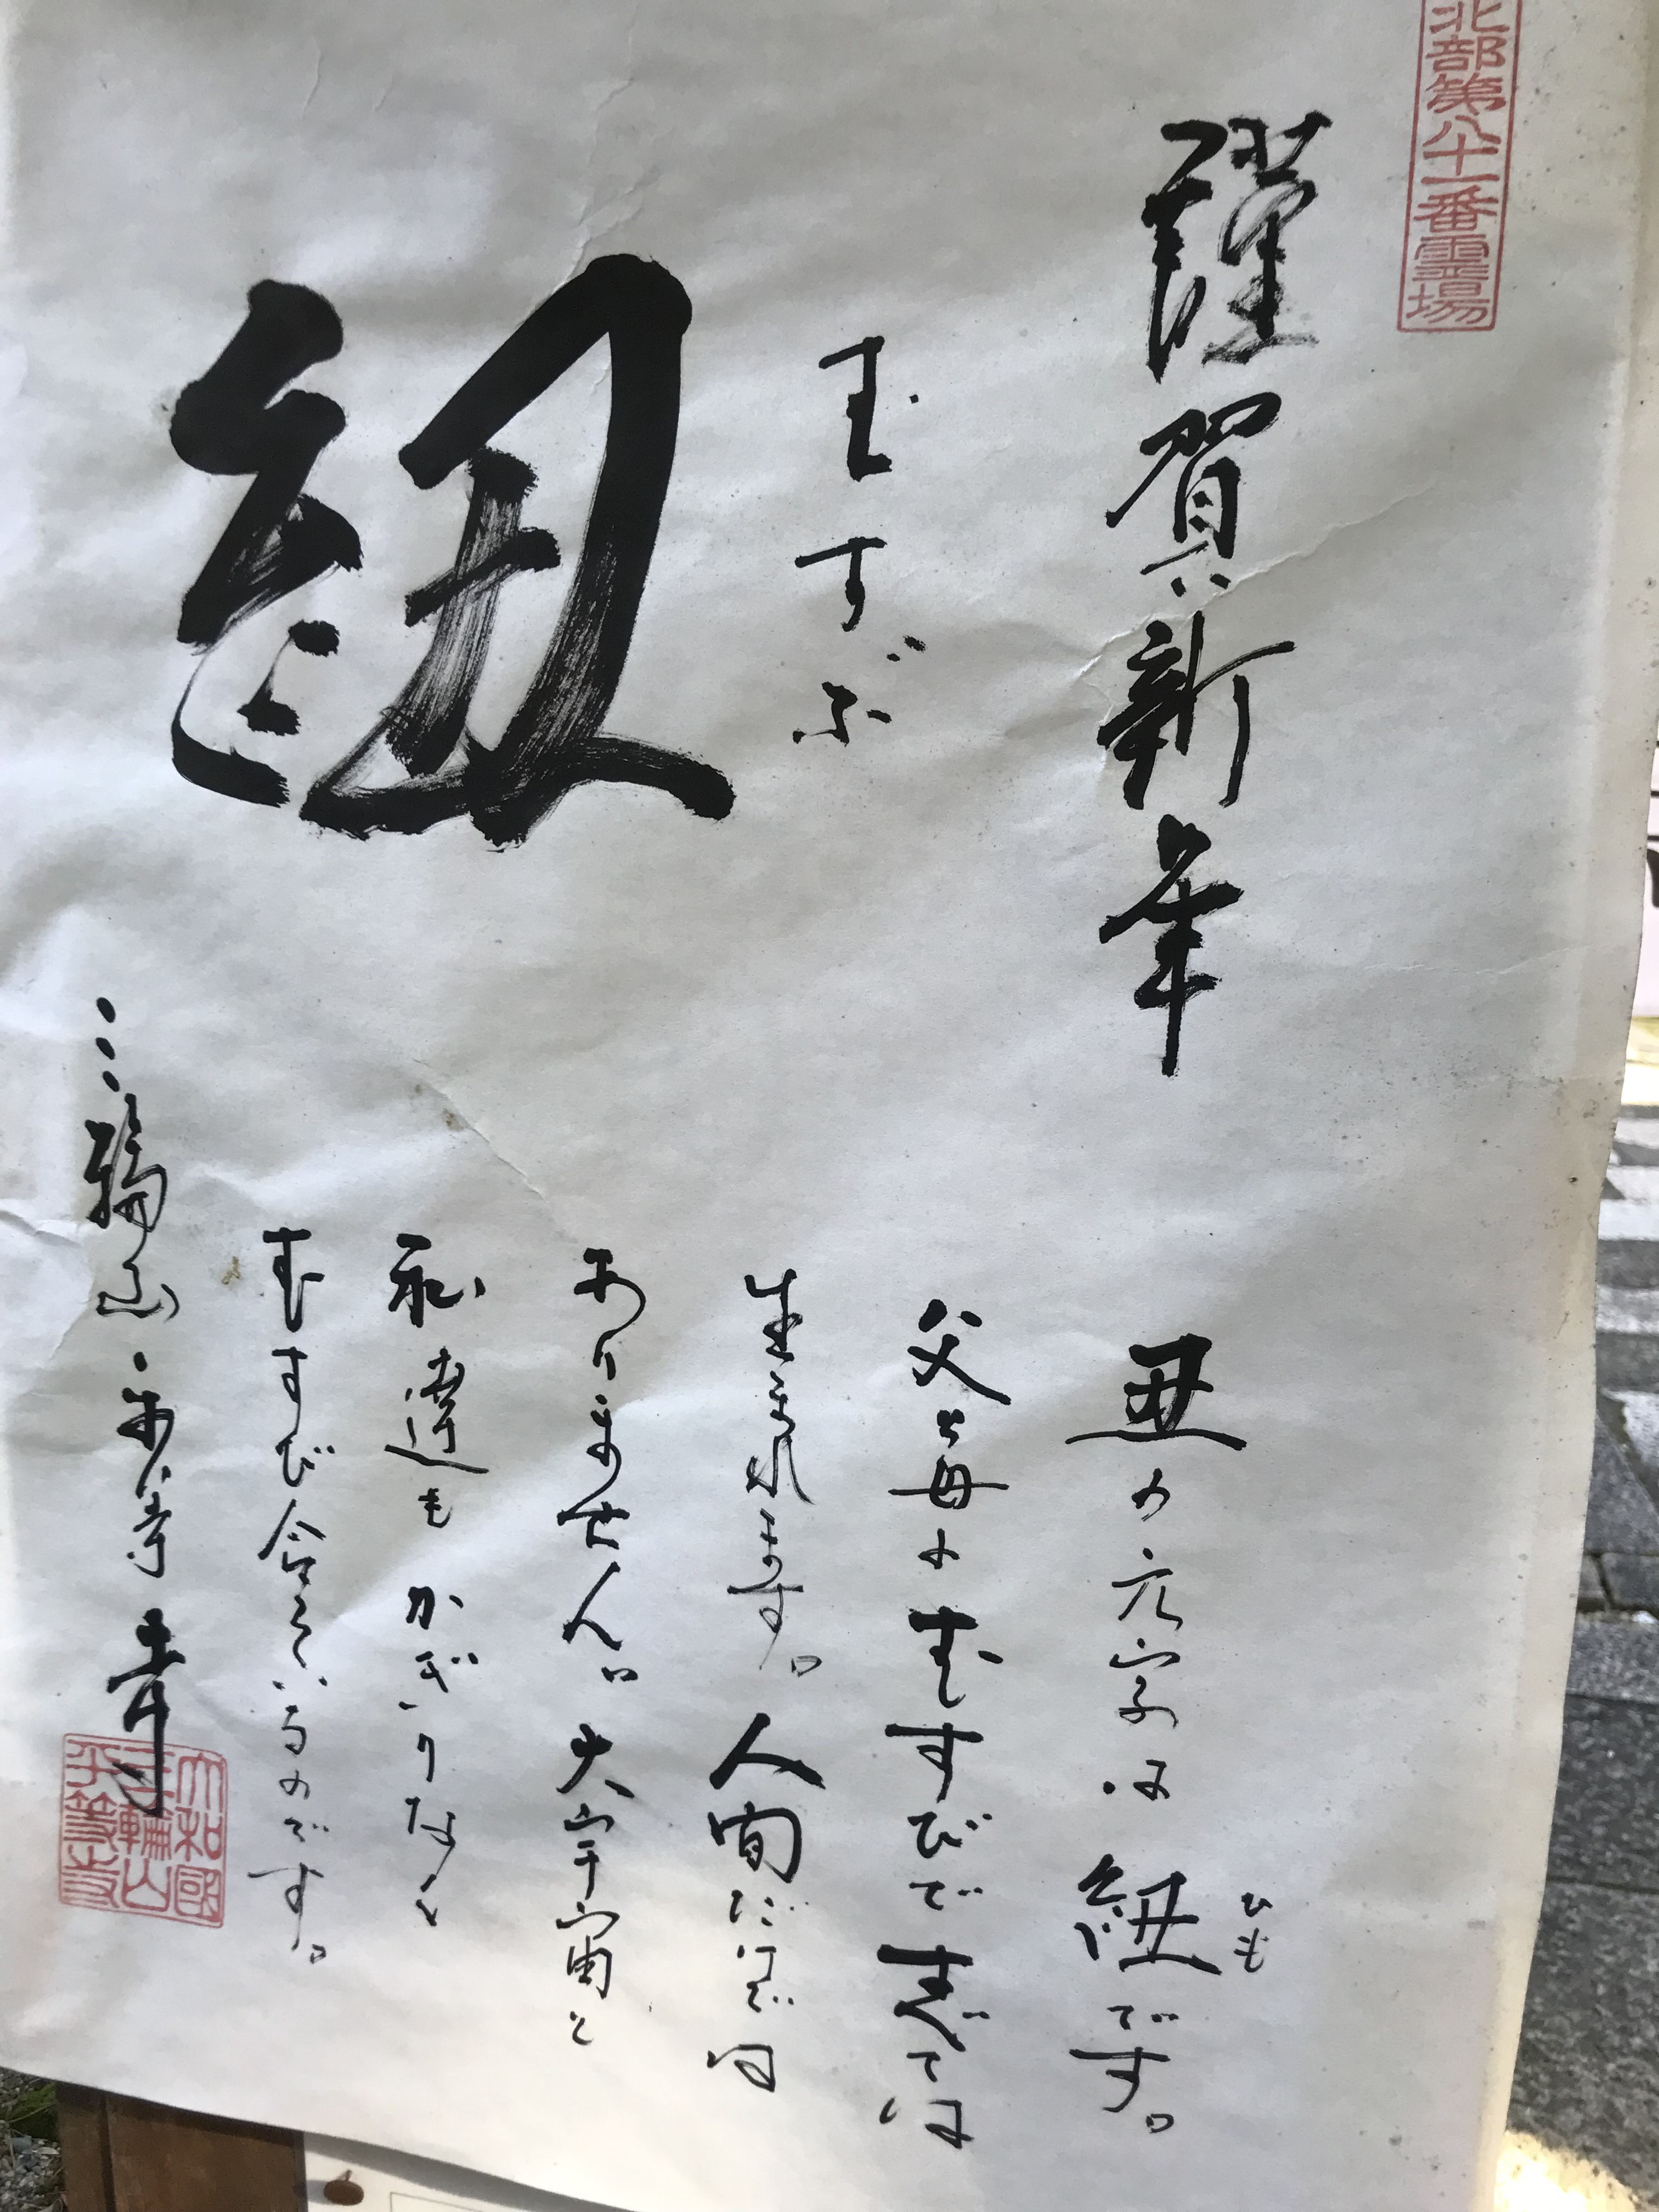 北部第八十一番霊場
謹賀新年
むすぶ
紐
丑の元字は紐です。
ひも
父と母のむすびですべては
生まれます。人間だけでは
ありません。大宇宙と
私達もかぎりなく
むすび合っているのです。
三輪山・平等寺
大和國
三輪山
平等寺